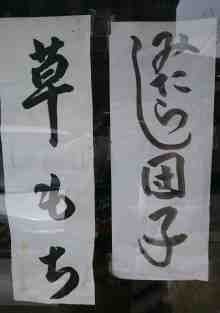 みたらし団子
草もち